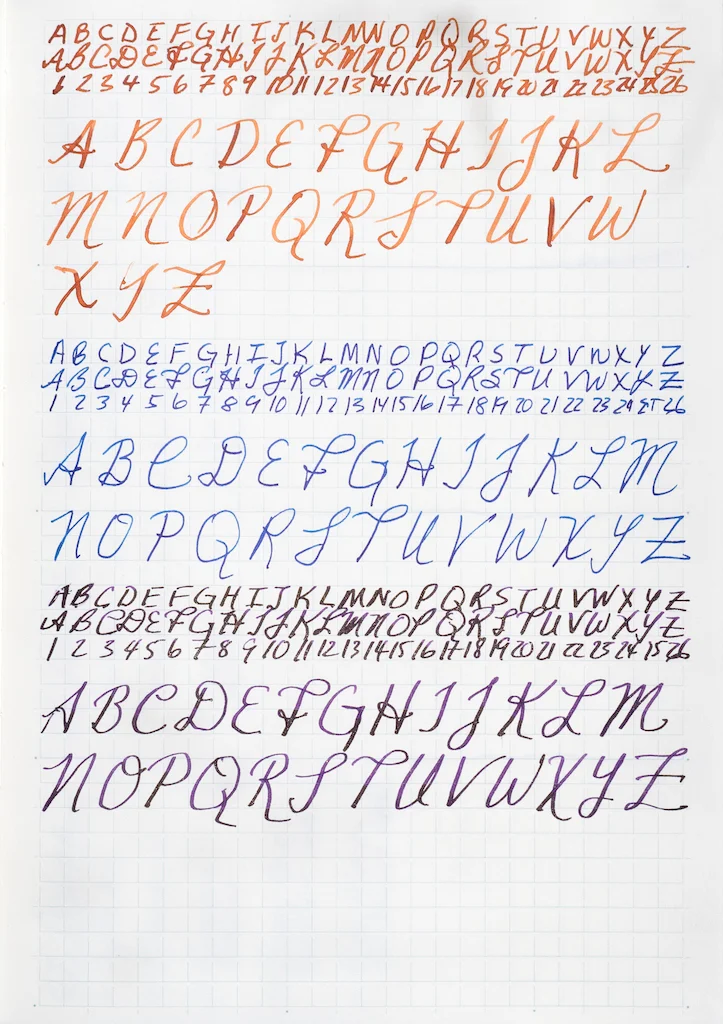 A B C D E F G H I J K L M N O P Q R S T U V W X Y Z
A B C D E F G H I J K L M N O P Q R S T U V W X Y Z
1 2 3 4 5 6 7 8 9 10 11 12 13 14 15 16 17 18 19 20 21 22 23 24 25 26
A B C D E F G H I J K L
M N O P Q R S T U V W
X Y Z
A B C D E F G H I J K L M N O P Q R S T U V W X Y Z
A B C D E F G H I J K L M N O P Q R S T U V W X Y Z
1 2 3 4 5 6 7 8 9 10 11 12 13 14 15 16 17 18 19 20 21 22 23 24 25 26
A B C D E F G H I J K L M
N O P Q R S T U V W X Y Z
A B C D E F G H I J K L M N O P Q R S T U V W X Y Z
A B C D E F G H I J K L M N O P Q R S T U V W X Y Z
1 2 3 4 5 6 7 8 9 10 11 12 13 14 15 16 17 18 19 20 21 22 23 24 15 26
A B C D E F G H I J K L M
N O P Q R S T U V W X Y Z